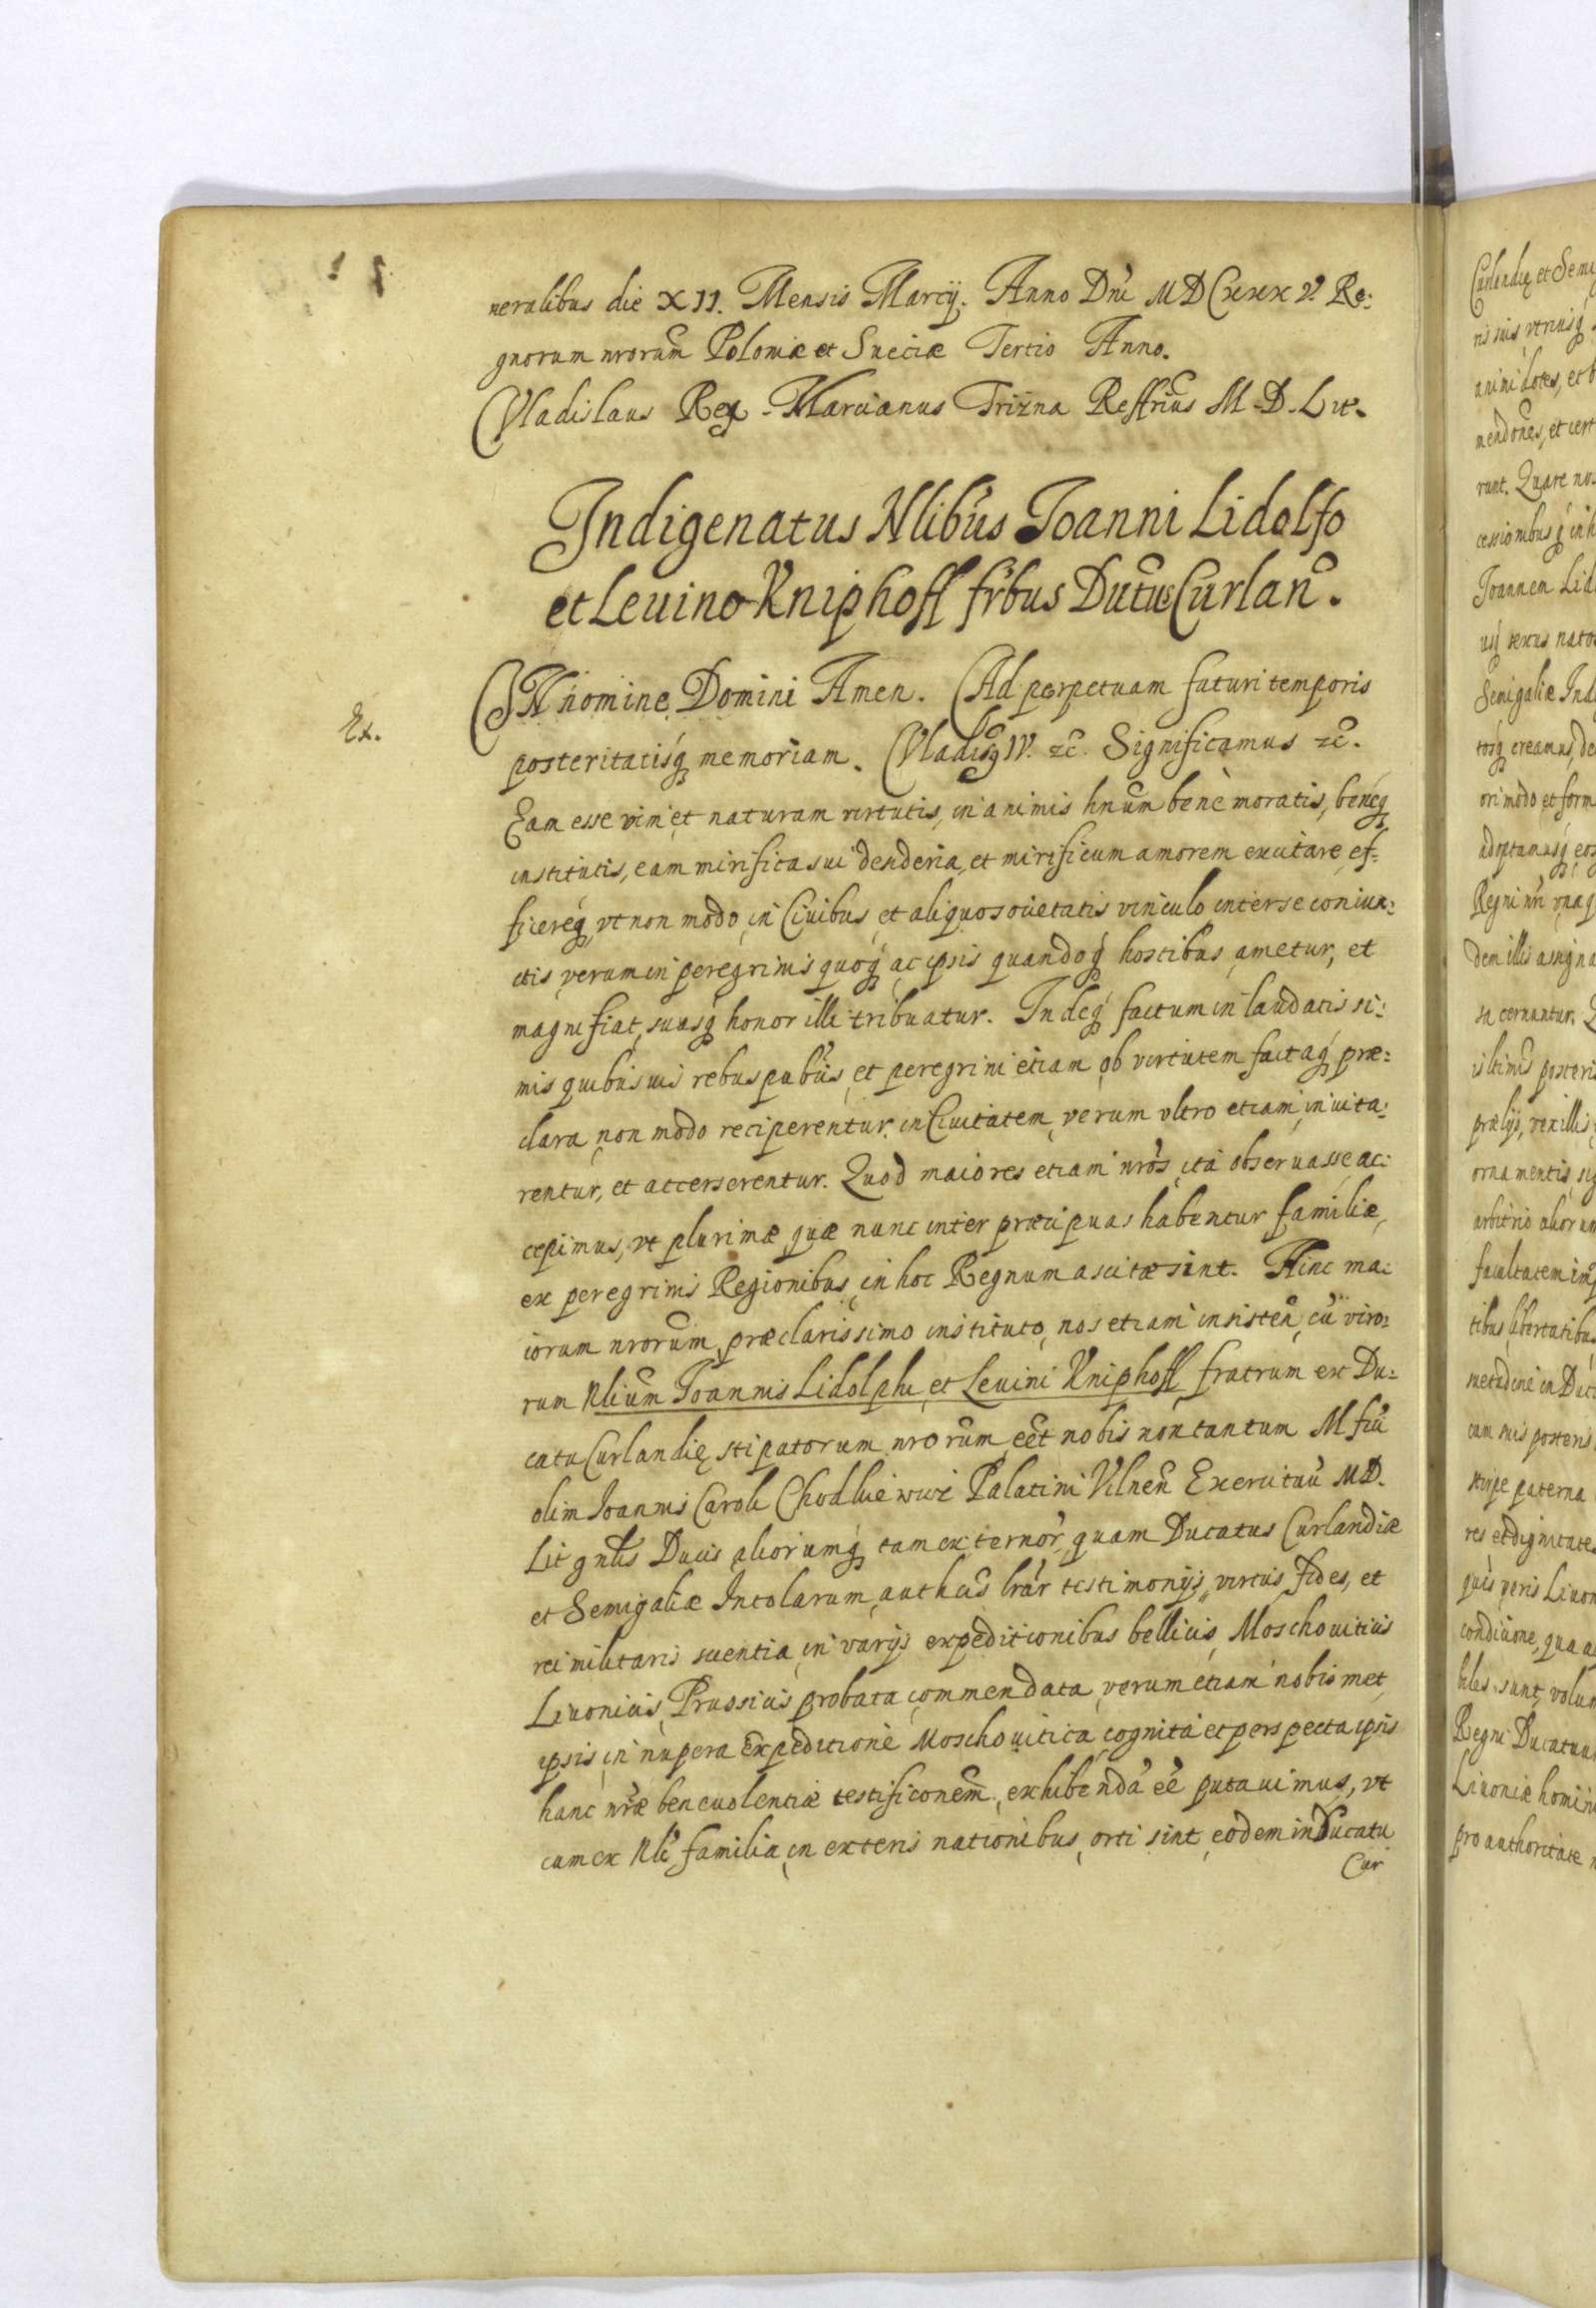 neralibus die XII. Mensis Marcij. Anno Dni MDCxxx V. Re:
gnorum nrorum Poloniæ et Sueciæ Tertio Anno.
Vladislaus Rex. Marcianus Trizna Reffrius M. D. Lit.
Indigenatus Nlibus Joanni Lidolfo
et Leuino Kniphoff frbus Dutus Curlan.
Ex.
IN nomine Domini Amen. Ad perpetuam futuri temporis
posteritatisq memoriam. Vladisq IV. &c. Significamus &c.
Eam esse vim et naturam virtutis, in animis hnum bene moratis, beneq
institutis, eam mirifica sui desideria, et mirificum amorem excitare, ef:
ficereq, vt non modo in Ciuibus, et aliquo societatis vinculo inter se coniun:
ctis verum in peregrinis quoq ac ipsis quandoq hostibus ametur, et
magni fiat, suasq honor illi tribuatur. Indeq factum in laudatissi:
mis quibusuis rebuspublis et peregrini etiam ob virtutem factaq præ:
clara non modo reciperentur in Ciuitatem, verum vltro etiam inuita:
rentur, et accerserentur. Quod maiores etiam nros ita obseruasse ac:
cepimus, vt plurimæ quæ nunc inter præcipuas habentur familiæ,
ex peregrinis Regionibus in hoc Regnum ascitæ sint. Hinc ma:
iorum nrorum præclarissimo instituto, nos etiam insisten, cu viro:
rum Nlium Joannis Lidolphi et Leuini Kniphoff fratrum ex Du:
catu Curlandię stipatorum nrorum, eet nobis non tantum Mfiu
olim Joannis Caroli Chodkiewicz Palatini Vilnen Exercituu MD.
Lit gnlis Ducis aliorumq tam externor, quam Ducatus Curlandiæ
et Semigaliæ Incolarum, authcis lrar testimonijs, virtus, fides, et
rei militaris scientia in varijs expeditionibus bellicis, Moschouiticis
Liuonicis, Prussicis probata commendata, verum etiam nobis met
ipsis in nupera expeditione Moschouitica cognita et perspecta ipsis
hanc nræ beneuolentiæ testificonem exhibenda ee putauimus, vt
cum ex Nli familia in exteris nationibus orti sint, eodem in Ducatu
Cur
Curlandię et Semi
ris suis vtriusq
animi dotes, et
mendones, et cert
runt. Quare nos
cessionibusq in h
Joannem Lid
usq sexus natos
Semigaliæ Ind
tosq creamus, de
ori modo et form
adoptamusq eos
Regni nri vnaq
dem illis assigna
sa cernantur.
posteris
prælijs, vexillis
ornamentis, sig
arbitrio aliorum
facultatem imp
tibus libertatibus
in Duc
cum suis posteris
stirpe paterna
res et dignitates
quis veris Liuon
condicione, qua a
biles sunt, volum
Regni Ducatuu
Liuoniæ homini
pro authoritate n